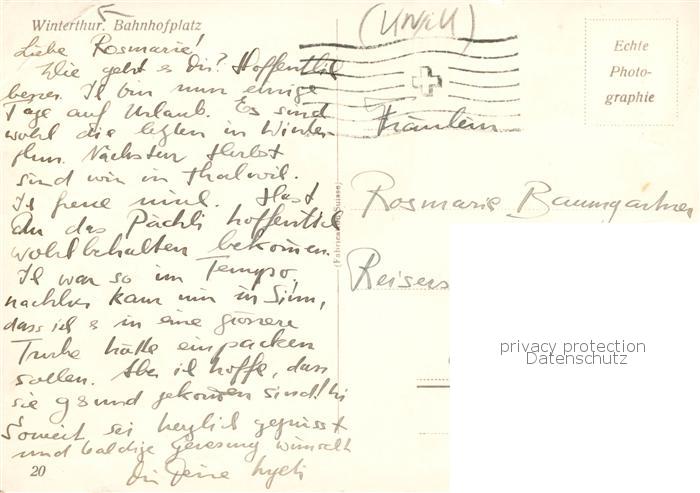 Winterthur. Bahnhofplatz
Liebe Rosmarie!
Wie geht es Dir? Hoffentlich
besser. Ich bin nun einige
Tage auf Urlaub. Es sind
wohl die letzten in Winter-
thur. Nächsten Herbst
sind wir in Thalwil.
Ich freue mich. Hast
du das Päckli hoffentlich
wohlbehalten bekommen.
Ich war so im Tempo,
nachher kam mir in Sinn,
dass ich es in eine grössere
Truhe hätte einpacken
sollen. Aber ich hoffe, dass
sie gsund gekommen sind!
Soweit sei herzlich gegrüsst
und baldige Genesung wünscht
Dir Deine
20
Echte
Photo-
graphie
Fräulein
Rosmarie Baumgartner
Reisers
privacy protection
Datenschutz